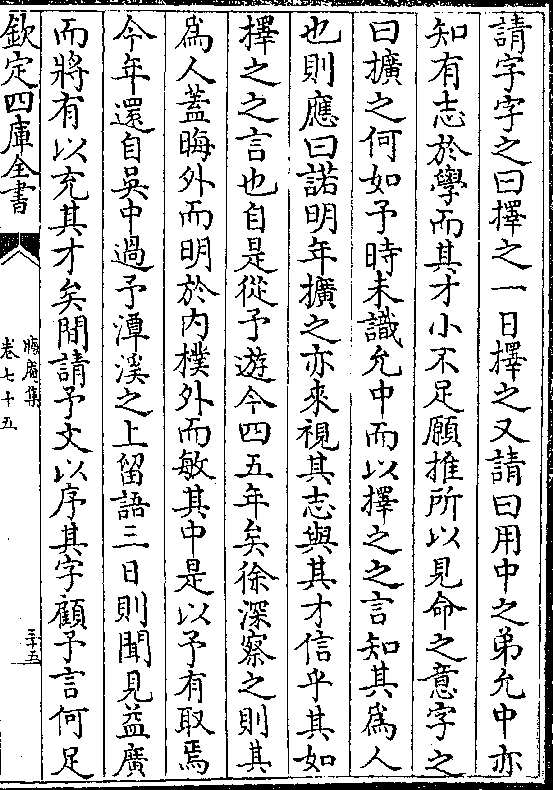 請字字之曰擇之一日擇之又請曰用中之弟允中亦
知有志於學而其才小不足願推所以見命之意字之
曰擴之何如予時未識允中而以擇之之言知其為人
也則應曰諾明年擴之亦來視其志與其才信乎其如
擇之之言也自是從予遊今四五年矣徐深察之則其
為人蓋晦外而明於内樸外而敏其中是以予有取焉
今年還自吳中過予潭溪之上留語三日則聞見益廣
而將有以充其才矣間請予文以序其字顧予言何足
欽定四庫全書
晦庵集
卷七十五
三十五